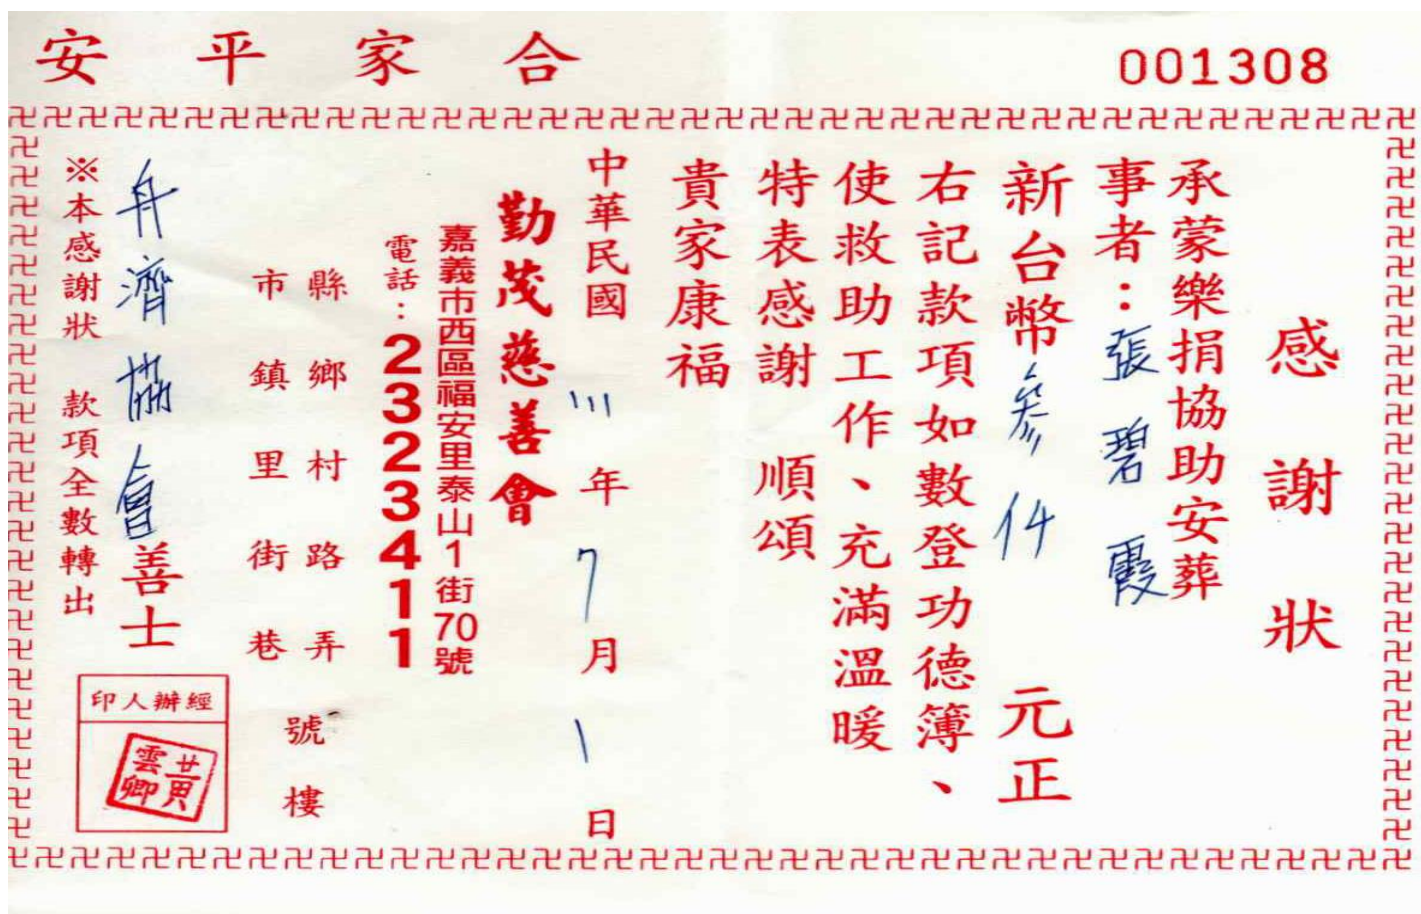 合家平安
001308
感謝狀
承蒙樂捐協助安葬
事者：張碧霞
新台幣參仟元正
右記款項如數登功德簿、
使救助工作、充滿溫暖
特表感謝 順頌
貴家康福
中華民國111年7月1日
勤茂慈善會
嘉義市西區福安里泰山1街70號
電話：2323411
縣鄉村路弄號
市鎮里街巷樓
舟濟協會善士
※本感謝狀 款項全數轉出
經辦人印
黃雲卿